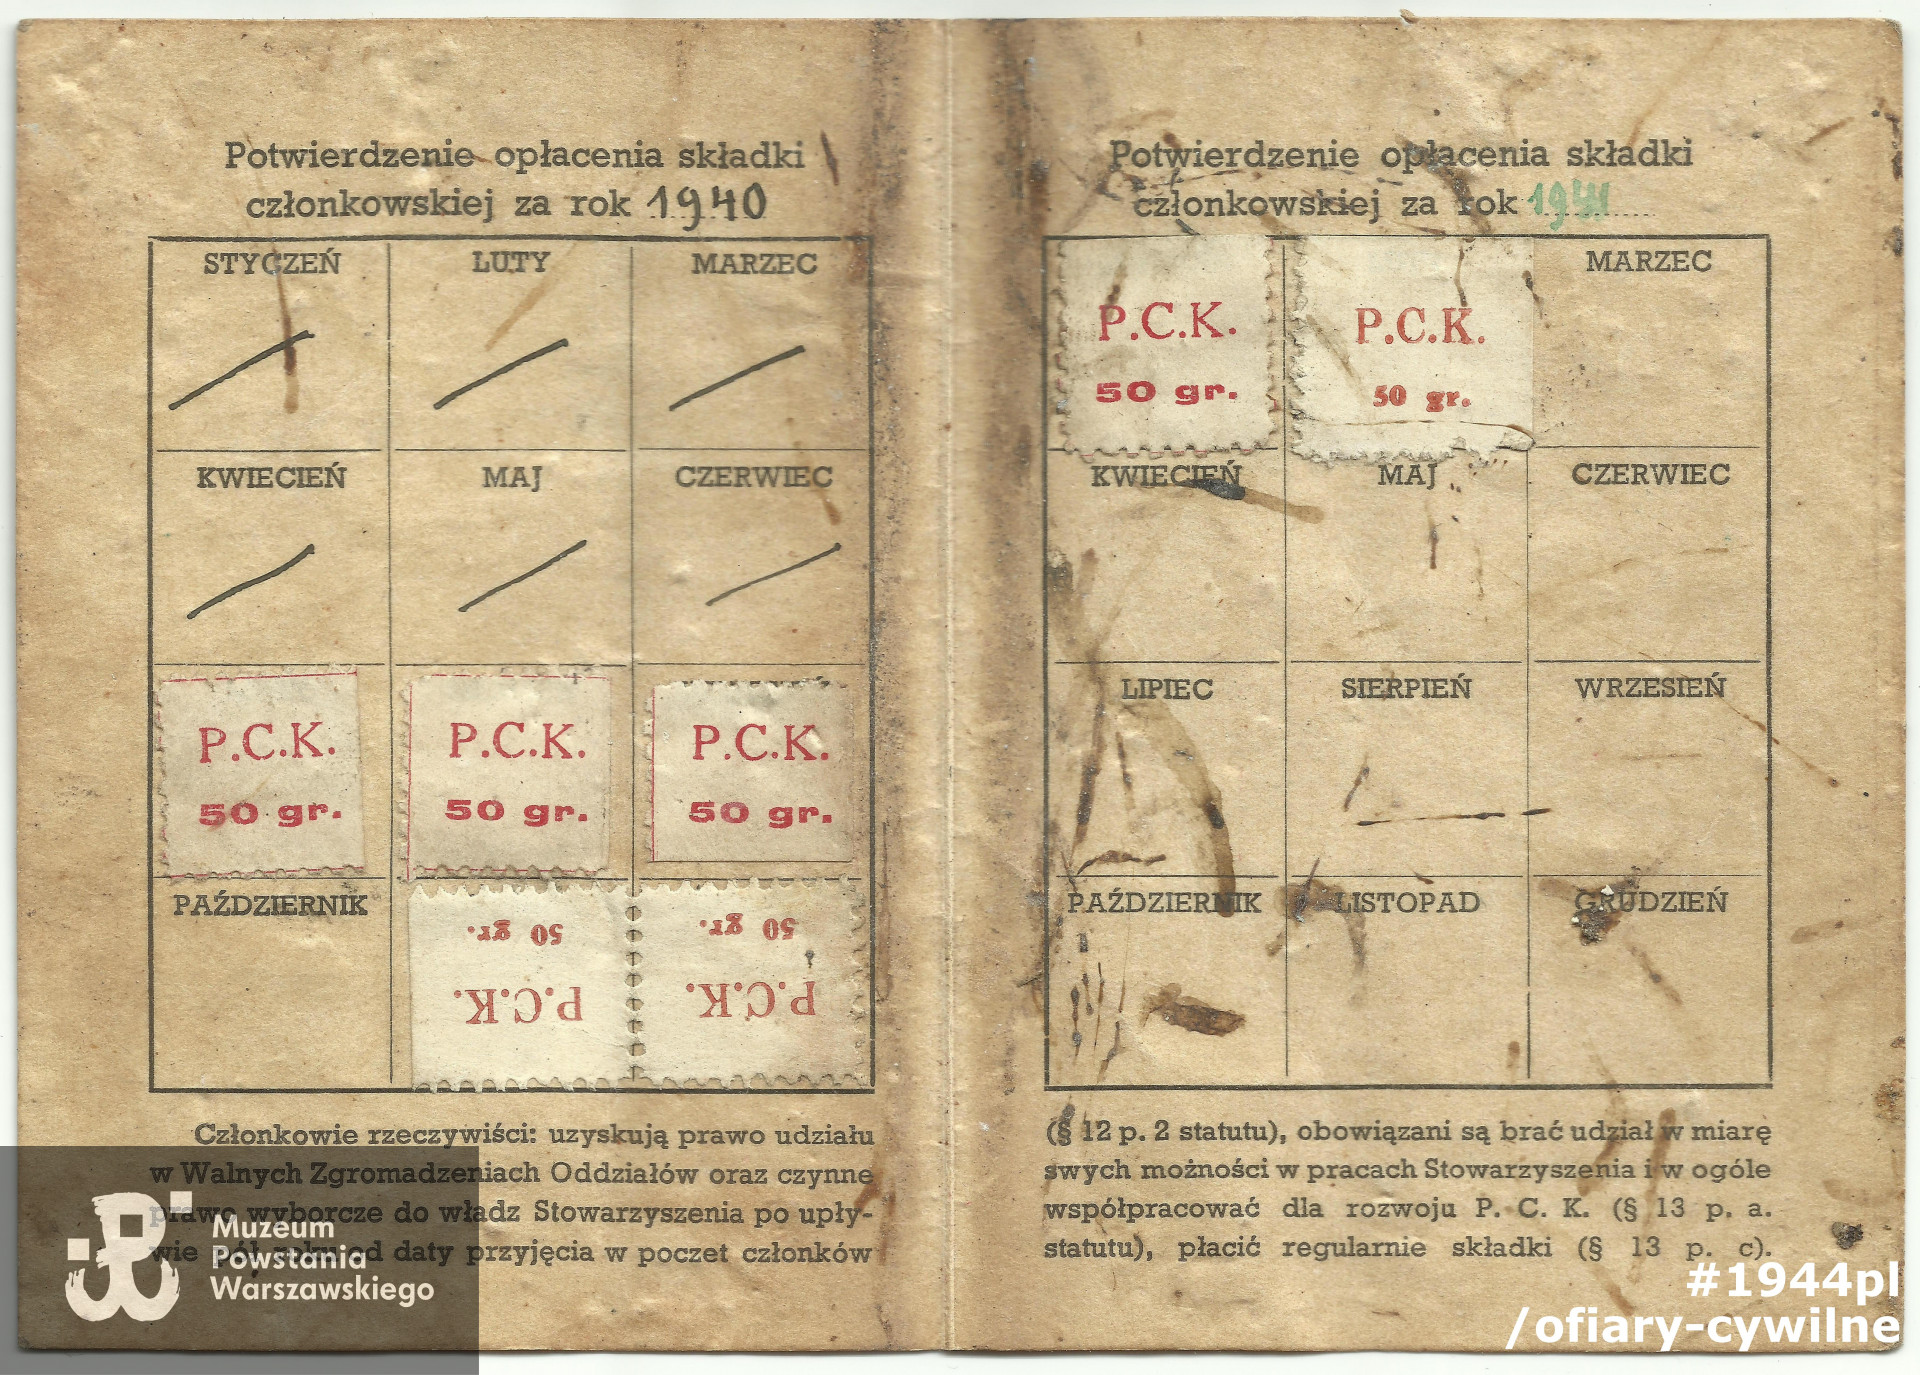 Potwierdzenie opłacenia składki
członkowskiej za rok 1940
STYCZEŃ LUTY MARZEC
KWIECIEŃ MAJ CZERWIEC
P.C.K. P.C.K. P.C.K.
50 gr. 50 gr. 50 gr.
PAŹDZIERNIK
50 gr. 50 gr.
P.C.K. P.C.K.
Członkowie rzeczywiści: uzyskują prawo udziału
w Walnych Zgromadzeniach Oddziałów oraz czynne
prawo wyborcze do władz Stowarzyszenia po upły-
wie pół roku od daty przyjęcia w poczet członków
Potwierdzenie opłacenia składki
członkowskiej za rok 1941
MARZEC
P.C.K. P.C.K.
50 gr. 50 gr.
KWIECIEŃ MAJ CZERWIEC
LIPIEC SIERPIEŃ WRZESIEŃ
PAŹDZIERNIK LISTOPAD GRUDZIEŃ
(§ 12 p. 2 statutu), obowiązani są brać udział w miarę
swych możności w pracach Stowarzyszenia i w ogóle
współpracować dla rozwoju P. C. K. (§ 13 p. a.
statutu), płacić regularnie składki (§ 13 p. c).
Muzeum
Powstania
Warszawskiego
#1944pl
/ofiary-cywilne